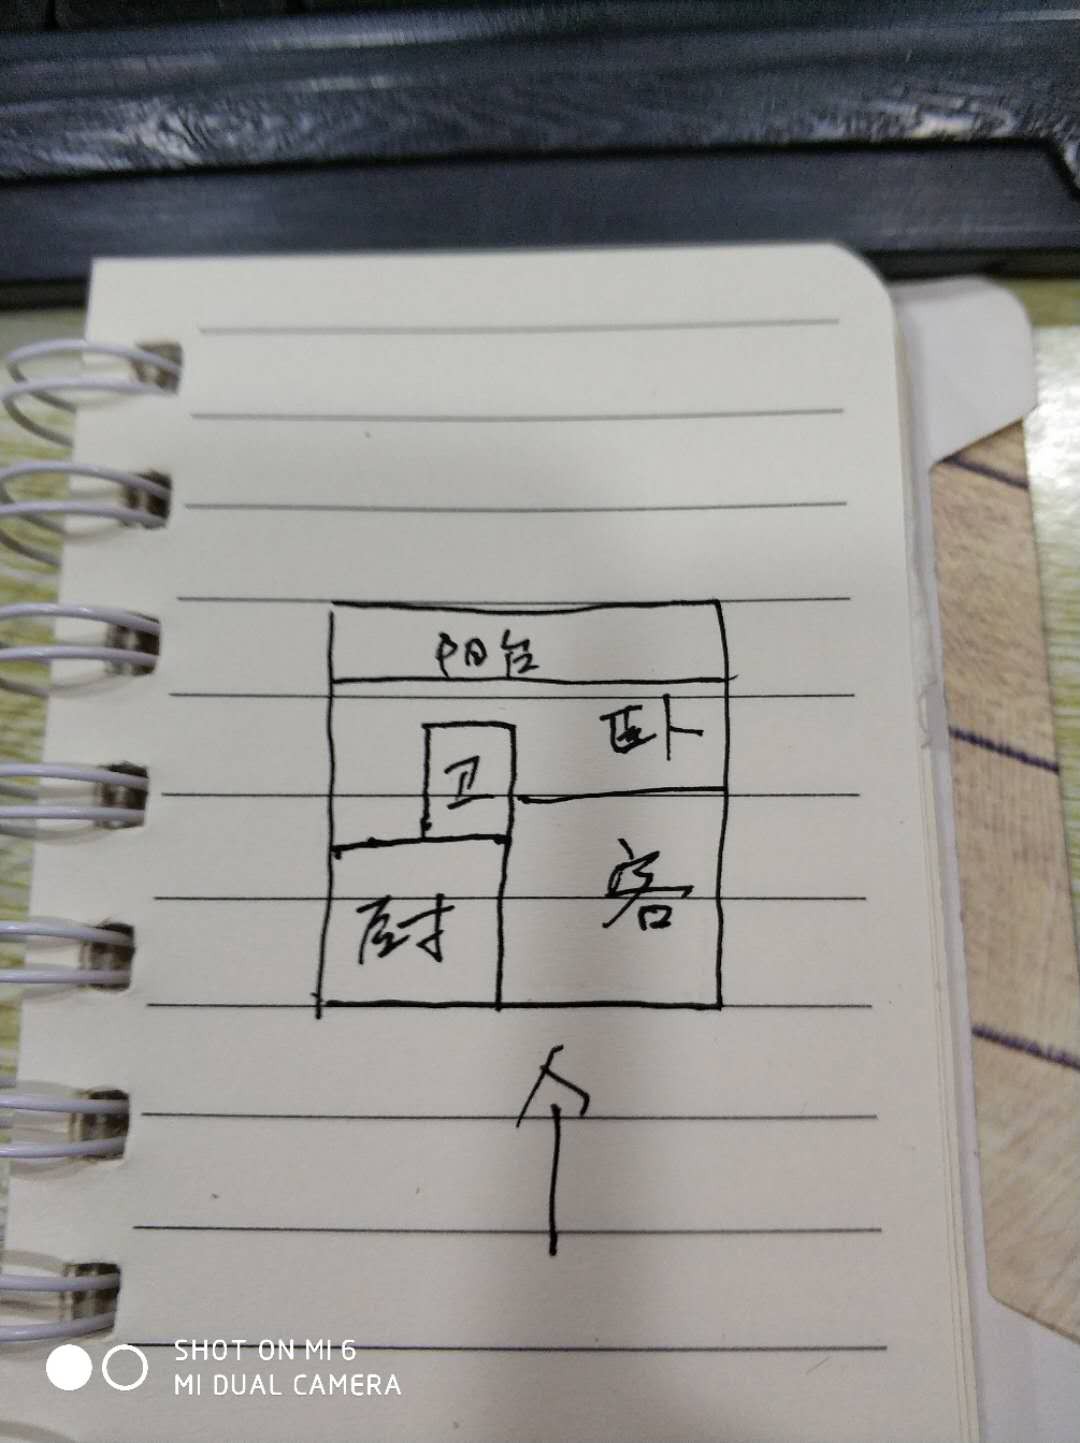 阳台
卧
卫
客
厨
SHOT ON MI 6
MI DUAL CAMERA